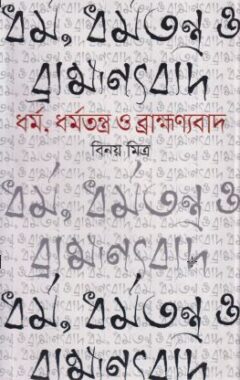 ধর্ম, ধর্মতন্ত্র ও
ব্রাহ্মণ্যবাদ
ধর্ম, ধর্মতন্ত্র ও ব্রাহ্মণ্যবাদ
বিনয় মিত্র
ধর্ম, ধর্মতন্ত্র ও
ব্রাহ্মণ্যবাদ
ধর্ম, ধর্মতন্ত্র ও
ব্রাহ্মণ্যবাদ